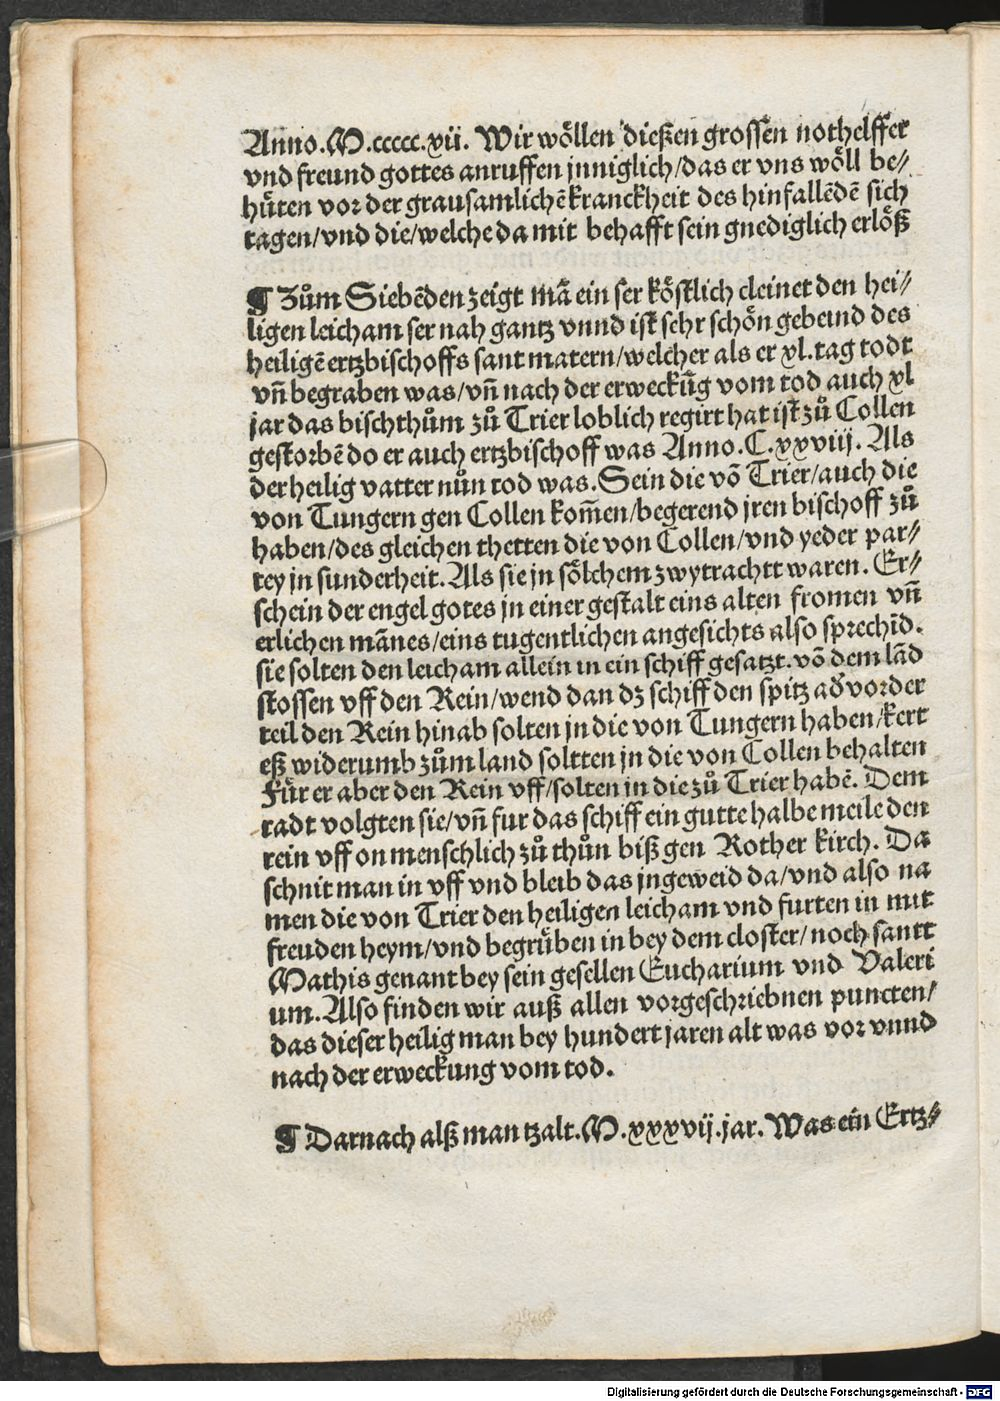 Anno.M.ccccc.xii. Wir wöllen dießen grossen nothelffer
vnd freund gottes anruffen jnniglich/das er vns wöll be⸗
hüten vor der grausamlichē kranckheit des hinfallēdē sich
tagen/vnd die/welche da mit behafft sein gnediglich erlöß
¶ Zům Siebēden zeigt mā ein ser köstlich cleinet den hei⸗
ligen leicham ser nah gantz vnnd ist sehr schön gebeind des
heiligē ertzbischoffs sant matern/welcher als er xl. tag todt
vn̄ begraben was/vn̄ nach der erweckūg vom tod auch xl
jar das bischthům zů Trier loblich regirt hat ist zů Collen
gestorbē do er auch ertzbischoff was Anno.C.xxviij. Als
der heilig vatter nůn tod was. Sein die vō Trier/auch die
von Tungern gen Collen kom̄en/begerend jren bischoff zů
haben/des gleichen thetten die von Collen/vnd yeder par⸗
tey jn sunderheit. Als sie jn sölchem zwytrachtt waren. Er⸗
schein der engel gotes jn einer gestalt eins alten fromen vn̄
erlichen mānes/eins tugentlichen angesichts also sprechīd.
sie solten den leicham allein in ein schiff gesatzt. vō dem lād
stossen vff den Rein/wend dan dz schiff den spitz ad̕ vorder
teil den Rein hinab solten jn die von Tungern haben/kert
eß widerumb zům land soltten jn die von Collen behalten
Für er aber den Rein vff/solten in die zů Trier habē. Dem
radt volgten sie/vn̄ fur das schiff ein gutte halbe meile den
rein vff on menschlich zů thůn biß gen Rother kirch. Da
schnit man in vff vnd bleib das jngeweid da/vnd also na
men die von Trier den heiligen leicham vnd furten in mit
freuden heym/vnd begrüben in bey dem closter/noch santt
Mathis genant bey sein gesellen Eucharium vnd Valeri
um. Also finden wir auß allen vorgeschriebnen puncten/
das dieser heilig man bey hundert jaren alt was vor vnnd
nach der erweckung vom tod.
¶ Darnach alß man tzalt.M.xxxvij.jar. Was ein Ertz⸗
Digitalisierung gefördert durch die Deutsche Forschungsgemeinschaft - DFG